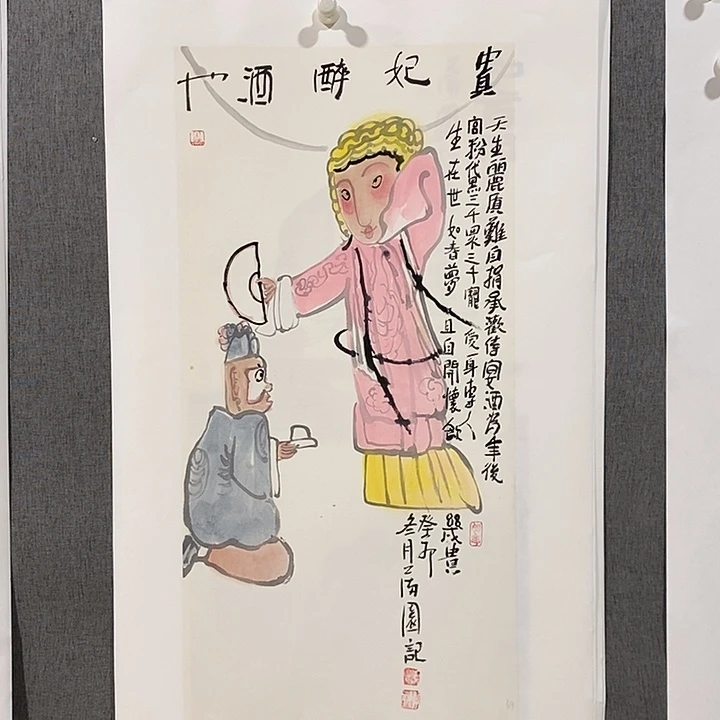 貴妃醉酒也
天生麗质難自捐承歡侍宴酒年後
宫粉黛三千眾三千寵愛一身專人
生在世如春夢且自開懷飲
幾
癸卯
冬月園記